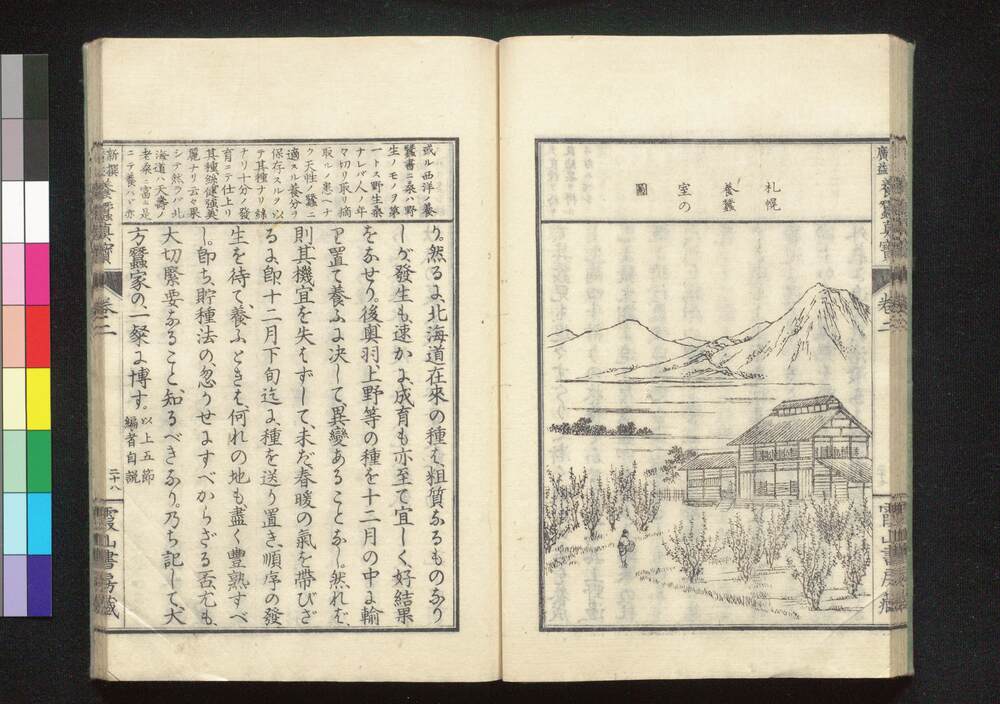 札幌
養蠶
室の
圖
廣益養蠶眞寶
卷二
霞山書房藏
或ル西洋ノ養
蠶書ニ桑ハ野
生ノモノヲ第
一トス野生桑
ナレバ人ノ年
々切リ取リ摘
取ルノ患ヘナ
ク天性ノ蠶ニ
適スル養分ヲ
保存スルヲ以
テ其種ナリ絲
ナリ十分ノ發
育ニテ仕上リ
其種絲健強美
麗ナリ云々果
シテ然ラバ北
海道ハ天壽ノ
老桑ニ富ム是
ニテ養ハヾ亦
り。然るよ、北海道在來の種も、粗質なるものなり
しが、發生も速かよ、成育も亦至て宜しく好結果
をなせり。後奧羽、上野等の種を十二月の中よ輸
と置て養ふよ決して、異變あることなし。然れを、
則其機宜を失もずして、未だ、春暖の氣を帶びざ
るよ、卽十二月下旬迄よ、種を送り置き、順序の發
生を待て、養ふときも、何れの地も盡く豐熟すべ
し。卽ち、貯種法の、忽うせよすべからざる至尤も、
大切緊要なること、知るべきなり。乃ち記して、大
方蠶家の、一粲よ博す。以上五節
編者自說
新撰養蠶眞寶
卷二
二十八
霞山書房藏